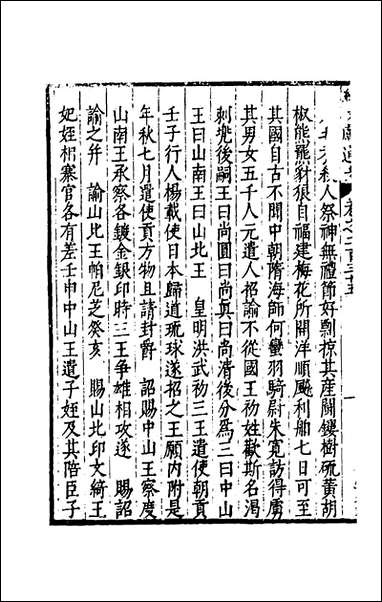 人祭神無禮節好剽掠其産鬬鏤樹硫黄胡
椒熊羆豺狼自福建梅花所開洋順颷利舶七日可至
其國自古不聞中朝隋海師何蠻羽騎尉朱寛訪得虜
其男女五千人元遣人招諭不從國王初姓歡斯名渴
刺兠後嗣王曰尚圓曰尚真曰尚清後分為三曰中山
王曰山南王曰山北王 皇明洪武初三王遣使朝貢
壬子行人楊載使日本歸道琉球遂招之王願内附是
年秋七月遣使貢方物且請封爵 詔賜中山王察度
山南王承察各鍍金銀印時三王争雄相攻遂 賜詔
諭之并 諭山北王帕尼芝癸亥 賜山北印文綺王
妃姪相寨官各有差壬申中山王遣子姪及其陪臣子